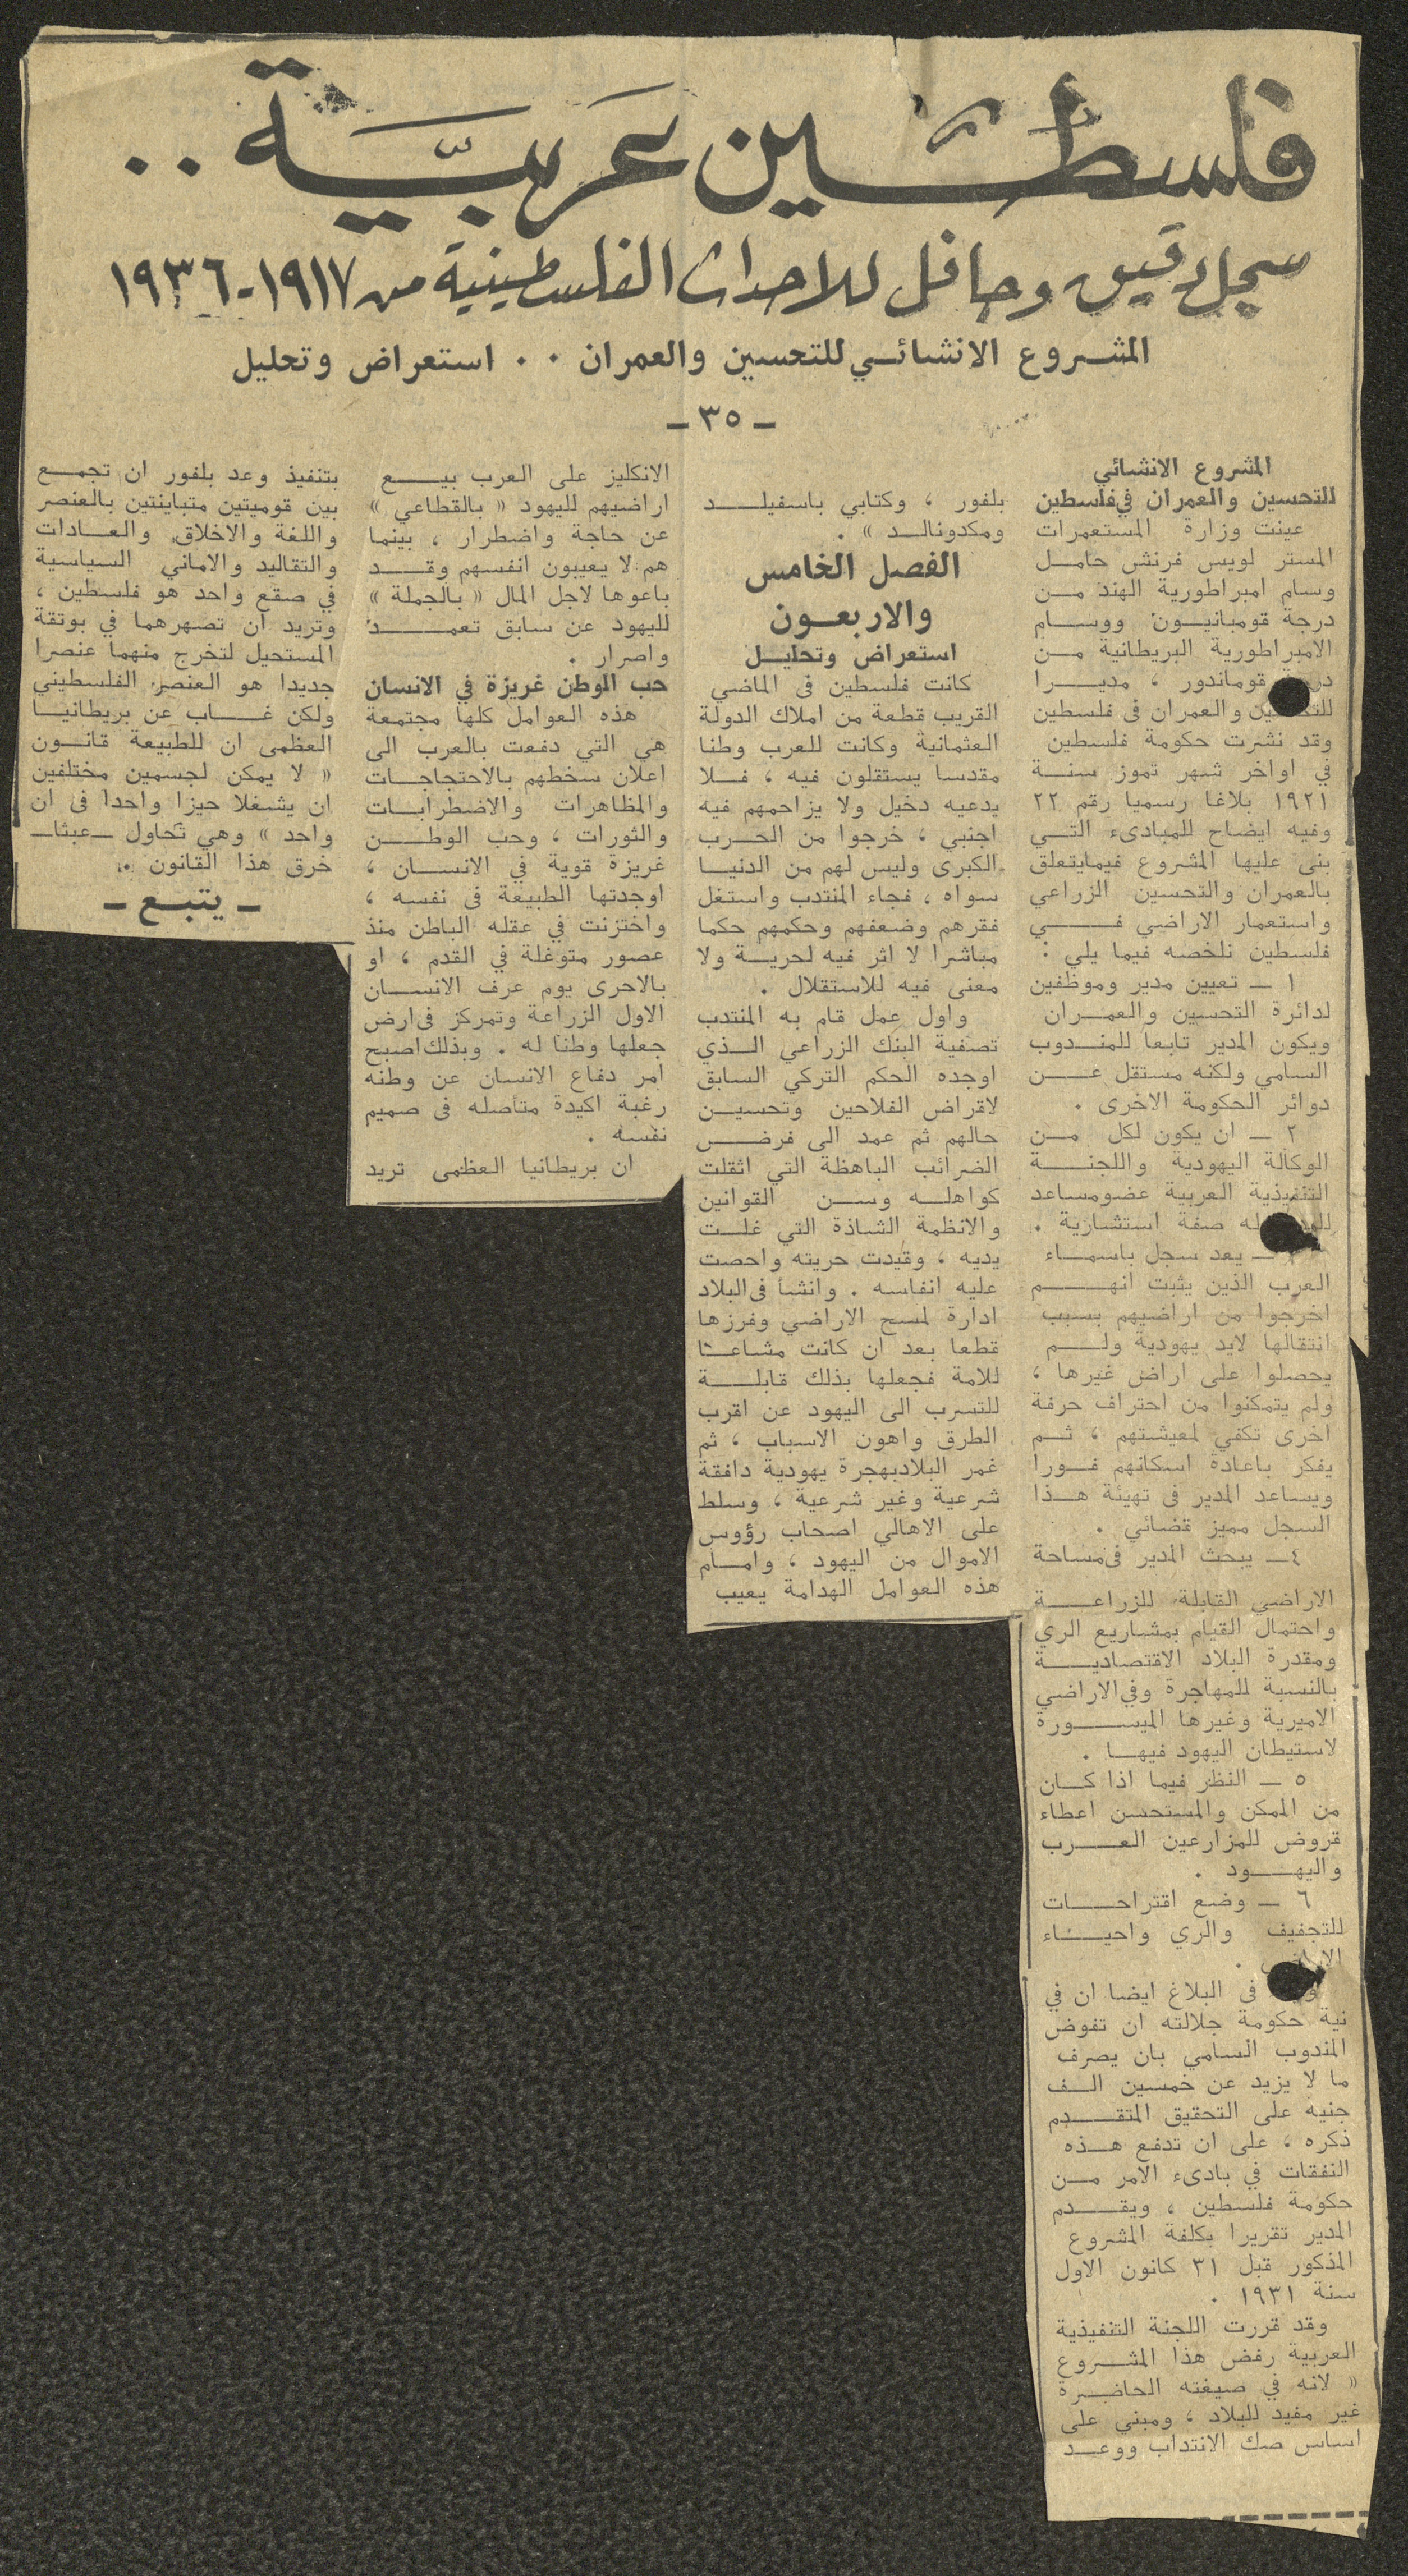 فلسطين عربيّة ..
سجل دقيق وحافل للاحداث الفلسطينية من ١٩١٧-١٩٣٦
المشروع الانشائي للتحسين والعمران ٠٠ استعراض وتحليل
- ٣٥ -
المشروع الانشائي
للتحسين والعمران في فلسطين
عينت وزارة المستعمرات
المستر لويس فرنش حامل
وسام امبراطورية الهند من
درجة قومبانيون ووسام
الامبراطورية البريطانية من
قوماندور ، مديرا
والعمران فى فلسطين
وقد نشرت حكومة فلسطين
في اواخر شهر تموز سنة
١٩٢١ بلاغا رسميا رقم ٢٢
وفيه ايضاح للمبادىء التي
بنى عليها المشروع فيمايتعلق
بالعمران والتحسين الزراعي
واستعمار الاراضي في
فلسطين نلخصه فيما يلي :
١ — تعيين مدير وموظفين
لدائرة التحسين والعمران
ويكون المدير تابعا للمندوب
السامي ولكنه مستقل عن
دوائر الحكومة الاخرى .
٢ — ان يكون لكل من
الوكالة اليهودية واللجنة
التنفيذية العربية عضومساعد
له صفة استشارية .
— يعد سجل باسماء
العرب الذين يثبت انهم
اخرجوا من اراضيهم بسبب
انتقالها لايد يهودية ولم
يحصلوا على اراض غيرها ،
ولم يتمكنوا من احتراف حرفة
اخرى تكفي لمعيشتهم ، ثم
يفكر باعادة اسكانهم فورا
ويساعد المدير فى تهيئة هذا
السجل مميز قضائي .
٤ — يبحث المدير فى مساحة
الاراضي القابلة للزراعة
واحتمال القيام بمشاريع الري
ومقدرة البلاد الاقتصادية
بالنسبة للمهاجرة وفي الاراضي
الاميرية وغيرها الميسورة
لاستيطان اليهود فيها .
٥ — النظر فيما اذا كان
من الممكن والمستحسن اعطاء
قروض للمزارعين العرب
واليهود .
٦ — وضع اقتراحات
للتجفيف والري واحياء
فى البلاغ ايضا ان في
نية حكومة جلالته ان تفوض
المندوب السامي بان يصرف
ما لا يزيد عن خمسين الف
جنيه على التحقيق المتقدم
ذكره ، على ان تدفع هذه
النفقات في بادىء الامر من
حكومة فلسطين ، ويقدم
المدير تقريرا بكلفة المشروع
المذكور قبل ٣١ كانون الاول
سنة ١٩٣١ .
وقد قررت اللجنة التنفيذية
العربية رفض هذا المشروع
« لانه في صيغته الحاضرة
غير مفيد للبلاد ، ومبني على
اساس صك الانتداب ووعد
بلفور ، وكتابي باسفيلد
ومكدونالد » .
الفصل الخامس
والاربعون
استعراض وتحليل
كانت فلسطين فى الماضي
القريب قطعة من املاك الدولة
العثمانية وكانت للعرب وطنا
مقدسا يستقلون فيه ، فلا
يدعيه دخيل ولا يزاحمهم فيه
اجنبي ، خرجوا من الحرب
الكبرى وليس لهم من الدنيا
سواه ، فجاء المنتدب واستغل
فقرهم وضعفهم وحكمهم حكما
مباشرا لا اثر فيه لحرية ولا
معنى فيه للاستقلال .
واول عمل قام به المنتدب
تصفية البنك الزراعي الذي
اوجده الحكم التركي السابق
لاقراض الفلاحين وتحسين
حالهم ثم عمد الى فرض
الضرائب الباهظة التي اثقلت
كواهله وسن القوانين
والانظمة الشاذة التي غلت
يديه ، وقيدت حريته واحصت
عليه انفاسه . وانشأ فى البلاد
ادارة لمسح الاراضي وفرزها
قطعا بعد ان كانت مشاعا
للامة فجعلها بذلك قابلة
للتسرب الى اليهود عن اقرب
الطرق واهون الاسباب ، ثم
غمر البلادبهجرة يهودية دافقة
شرعية وغير شرعية ، وسلط
على الاهالي اصحاب رؤوس
الاموال من اليهود ، وامام
هذه العوامل الهدامة يعيب
الانكليز على العرب بيع
اراضيهم لليهود « بالقطاعي »
عن حاجة واضطرار ، بينما
هم لا يعيبون انفسهم وقد
باعوها لاجل المال « بالجملة »
لليهود عن سابق تعمد
واصرار .
حب الوطن غريزة في الانسان
هذه العوامل كلها مجتمعة
هي التي دفعت بالعرب الى
اعلان سخطهم بالاحتجاجات
والمظاهرات والاضطرابات
والثورات ، وحب الوطن
غريزة قوية في الانسان ،
اوجدتها الطبيعة فى نفسه ،
واختزنت في عقله الباطن منذ
عصور متوغلة في القدم ، او
بالاحرى يوم عرف الانسان
الاول الزراعة وتمركز فى ارض
جعلها وطنا له . وبذلك اصبح
امر دفاع الانسان عن وطنه
رغبة اكيدة متأصله فى صميم
نفسه .
ان بريطانيا العظمى تريد
بتنفيذ وعد بلفور ان تجمع
بين قوميتين متباينتين بالعنصر
واللغة والاخلاق والعادات
والتقاليد والاماني السياسية
في صقع واحد هو فلسطين ،
وتريد ان تصهرهما في بوتقة
المستحيل لتخرج منهما عنصرا
جديدا هو العنصر الفلسطيني
ولكن غاب عن بريطانيا
العظمى ان للطبيعة قانون
« لا يمكن لجسمين مختلفين
ان يشغلا حيزا واحدا فى ان
واحد » وهي تحاول — عبثا —
خرق هذا القانون .
- يتبع -